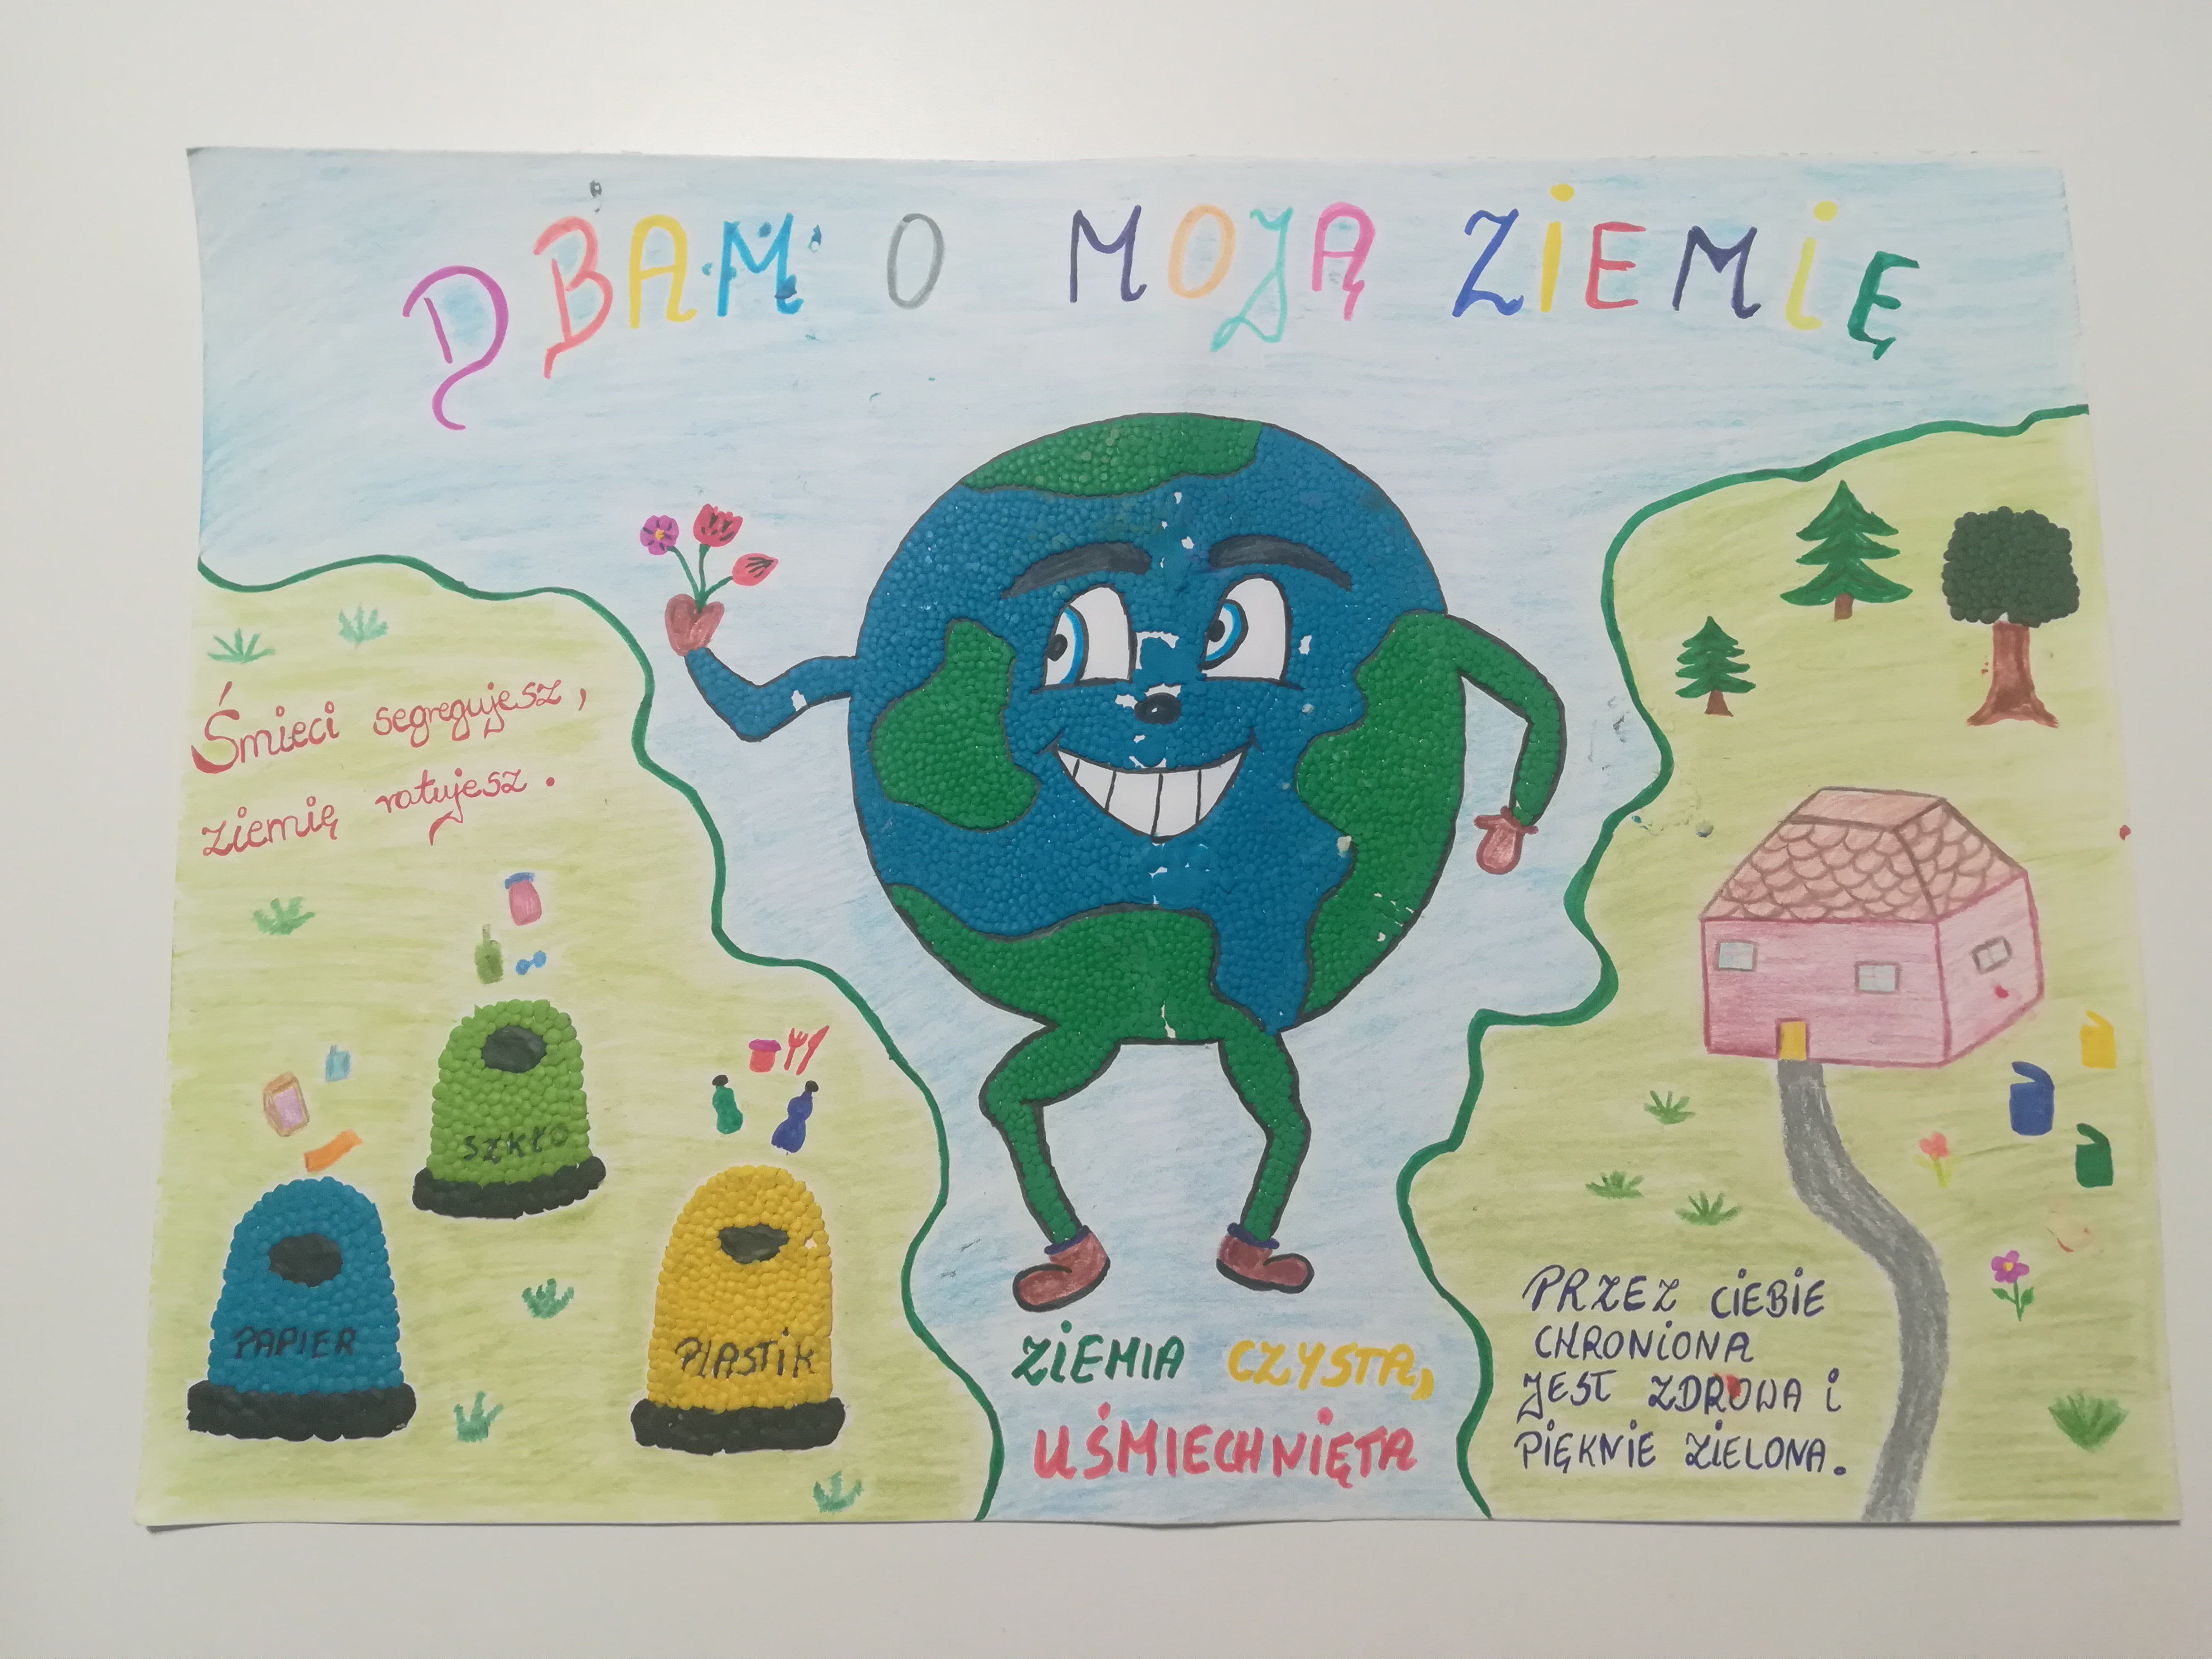 DBAM O MOJĄ ZIEMIĘ
Śmieci segregujesz,
ziemię ratujesz.
SZKŁO
PAPIER
PLASTIK
ZIEMIA CZYSTA,
UŚMIECHNIĘTA
PRZEZ CIEBIE
CHRONIONA
JEST ZDROWA I
PIĘKNIE ZIELONA.